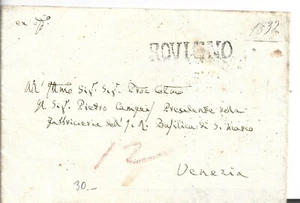 ex off
1832
ROVIGNO
All' Illmo Sigr Sigr
Il Sigr Pietro Presidente della
Fabbriceria dell' I. R. Basilica di S. Marco
12
Venezia
30.—